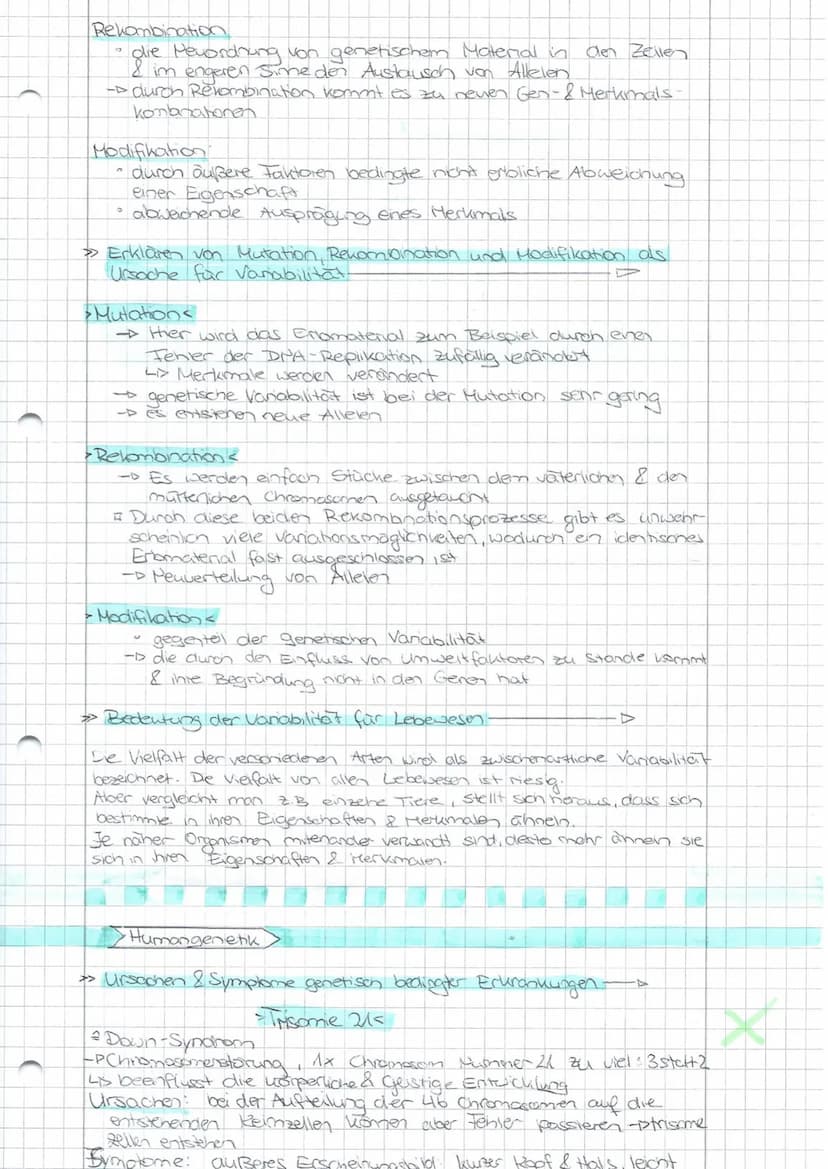 Rekombination
• die Neuordnung von genetischem Material in den Zellen
& im engeren Sinne den Austausch von Allelen
→ durch Rekombination kommt es zu neuen Gen- & Merkmals-
kombinationen
Modifikation:
• durch äußere Faktoren bedingte nicht erbliche Abweichung
einer Eigenschaft
• abweichende Ausprägung eines Merkmals
>> Erklären von Mutation, Rekombination und Modifikation als
Ursache für Variabilität
>Mutation<
→ Hier wird das Erbmaterial zum Beispiel durch einen
Fehler der DNA-Replikation zufällig verändert
↳ Merkmale werden verändert
→ genetische Variabilität ist bei der Mutation sehr gering
→ es entstehen neue Allelen
>Rekombination<
→ Es werden einfach Stücke zwischen dem väterlichen & den
mütterlichen Chromosomen ausgetauscht
Durch diese beiden Rekombinationsprozesse gibt es unwahr-
scheinlich viele Variationsmöglichkeiten, wodurch ein identisches
Erbmaterial fast ausgeschlossen ist
→ Neuverteilung von Allelen
>Modifikation<
• gegenteil der genetischen Variabilität
→ die durch den Einfluss von Umweltfaktoren zu Stande kommt
& ihre Begründung nicht in den Genen hat
>> Bedeutung der Variabilität für Lebewesen
Die Vielfalt der verschiedenen Arten wird als zwischenartliche Variabilität
bezeichnet. Die Vielfalt von allen Lebewesen ist riesig.
Aber vergleicht man z.B einzelne Tiere, stellt sich heraus, dass sich
bestimmte in ihren Eigenschaften & Merkmalen ähneln.
Je näher Organismen miteinander verwandt sind, desto mehr ähneln sie
sich in ihren Eigenschaften & Merkmalen.
Humangenetik
>> Ursachen & Symptome genetisch bedingter Erkrankungen
>Trisomie 21<
Down-Syndrom
→ Chromosomenstörung, 1x Chromosom Nummer 21 zu viel: 3 statt 2
↳ beeinflusst die körperliche & Geistige Entwicklung
Ursachen: bei der Aufteilung der 46 Chromosomen auf die
entstehenden Keimzellen können aber Fehler passieren → trisome
Zellen entstehen
Symptome: äußeres Erscheinungsbild: kurzer Kopf & Hals, leicht